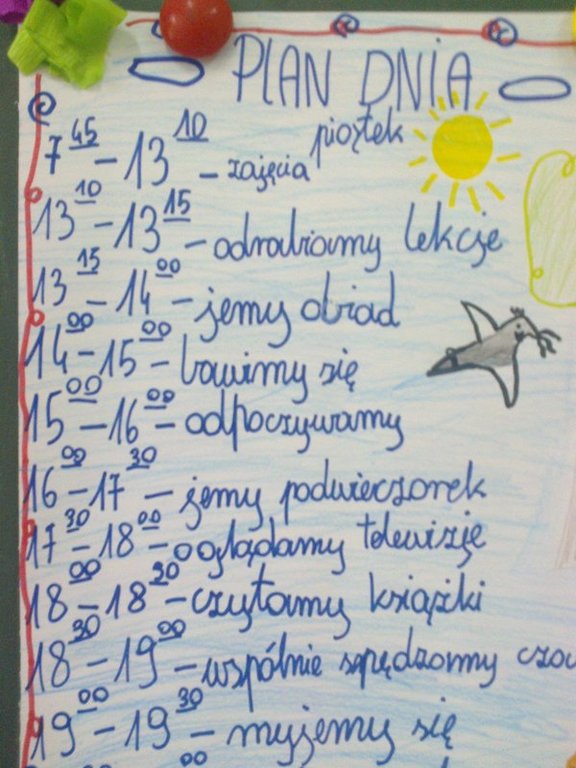 PLAN DNIA
piątek
7 45 – 13 10 – zajęcia
13 10 – 13 15 – odrabiamy lekcje
13 15 – 14 00 – jemy obiad
14 00 – 15 00 – bawimy się
15 00 – 16 00 – odpoczywamy
16 00 – 17 30 – jemy podwieczorek
17 30 – 18 00 – oglądamy telewizję
18 00 – 18 30 – czytamy książki
18 30 – 19 00 – wspólnie spędzamy
19 00 – 19 30 – myjemy się
00